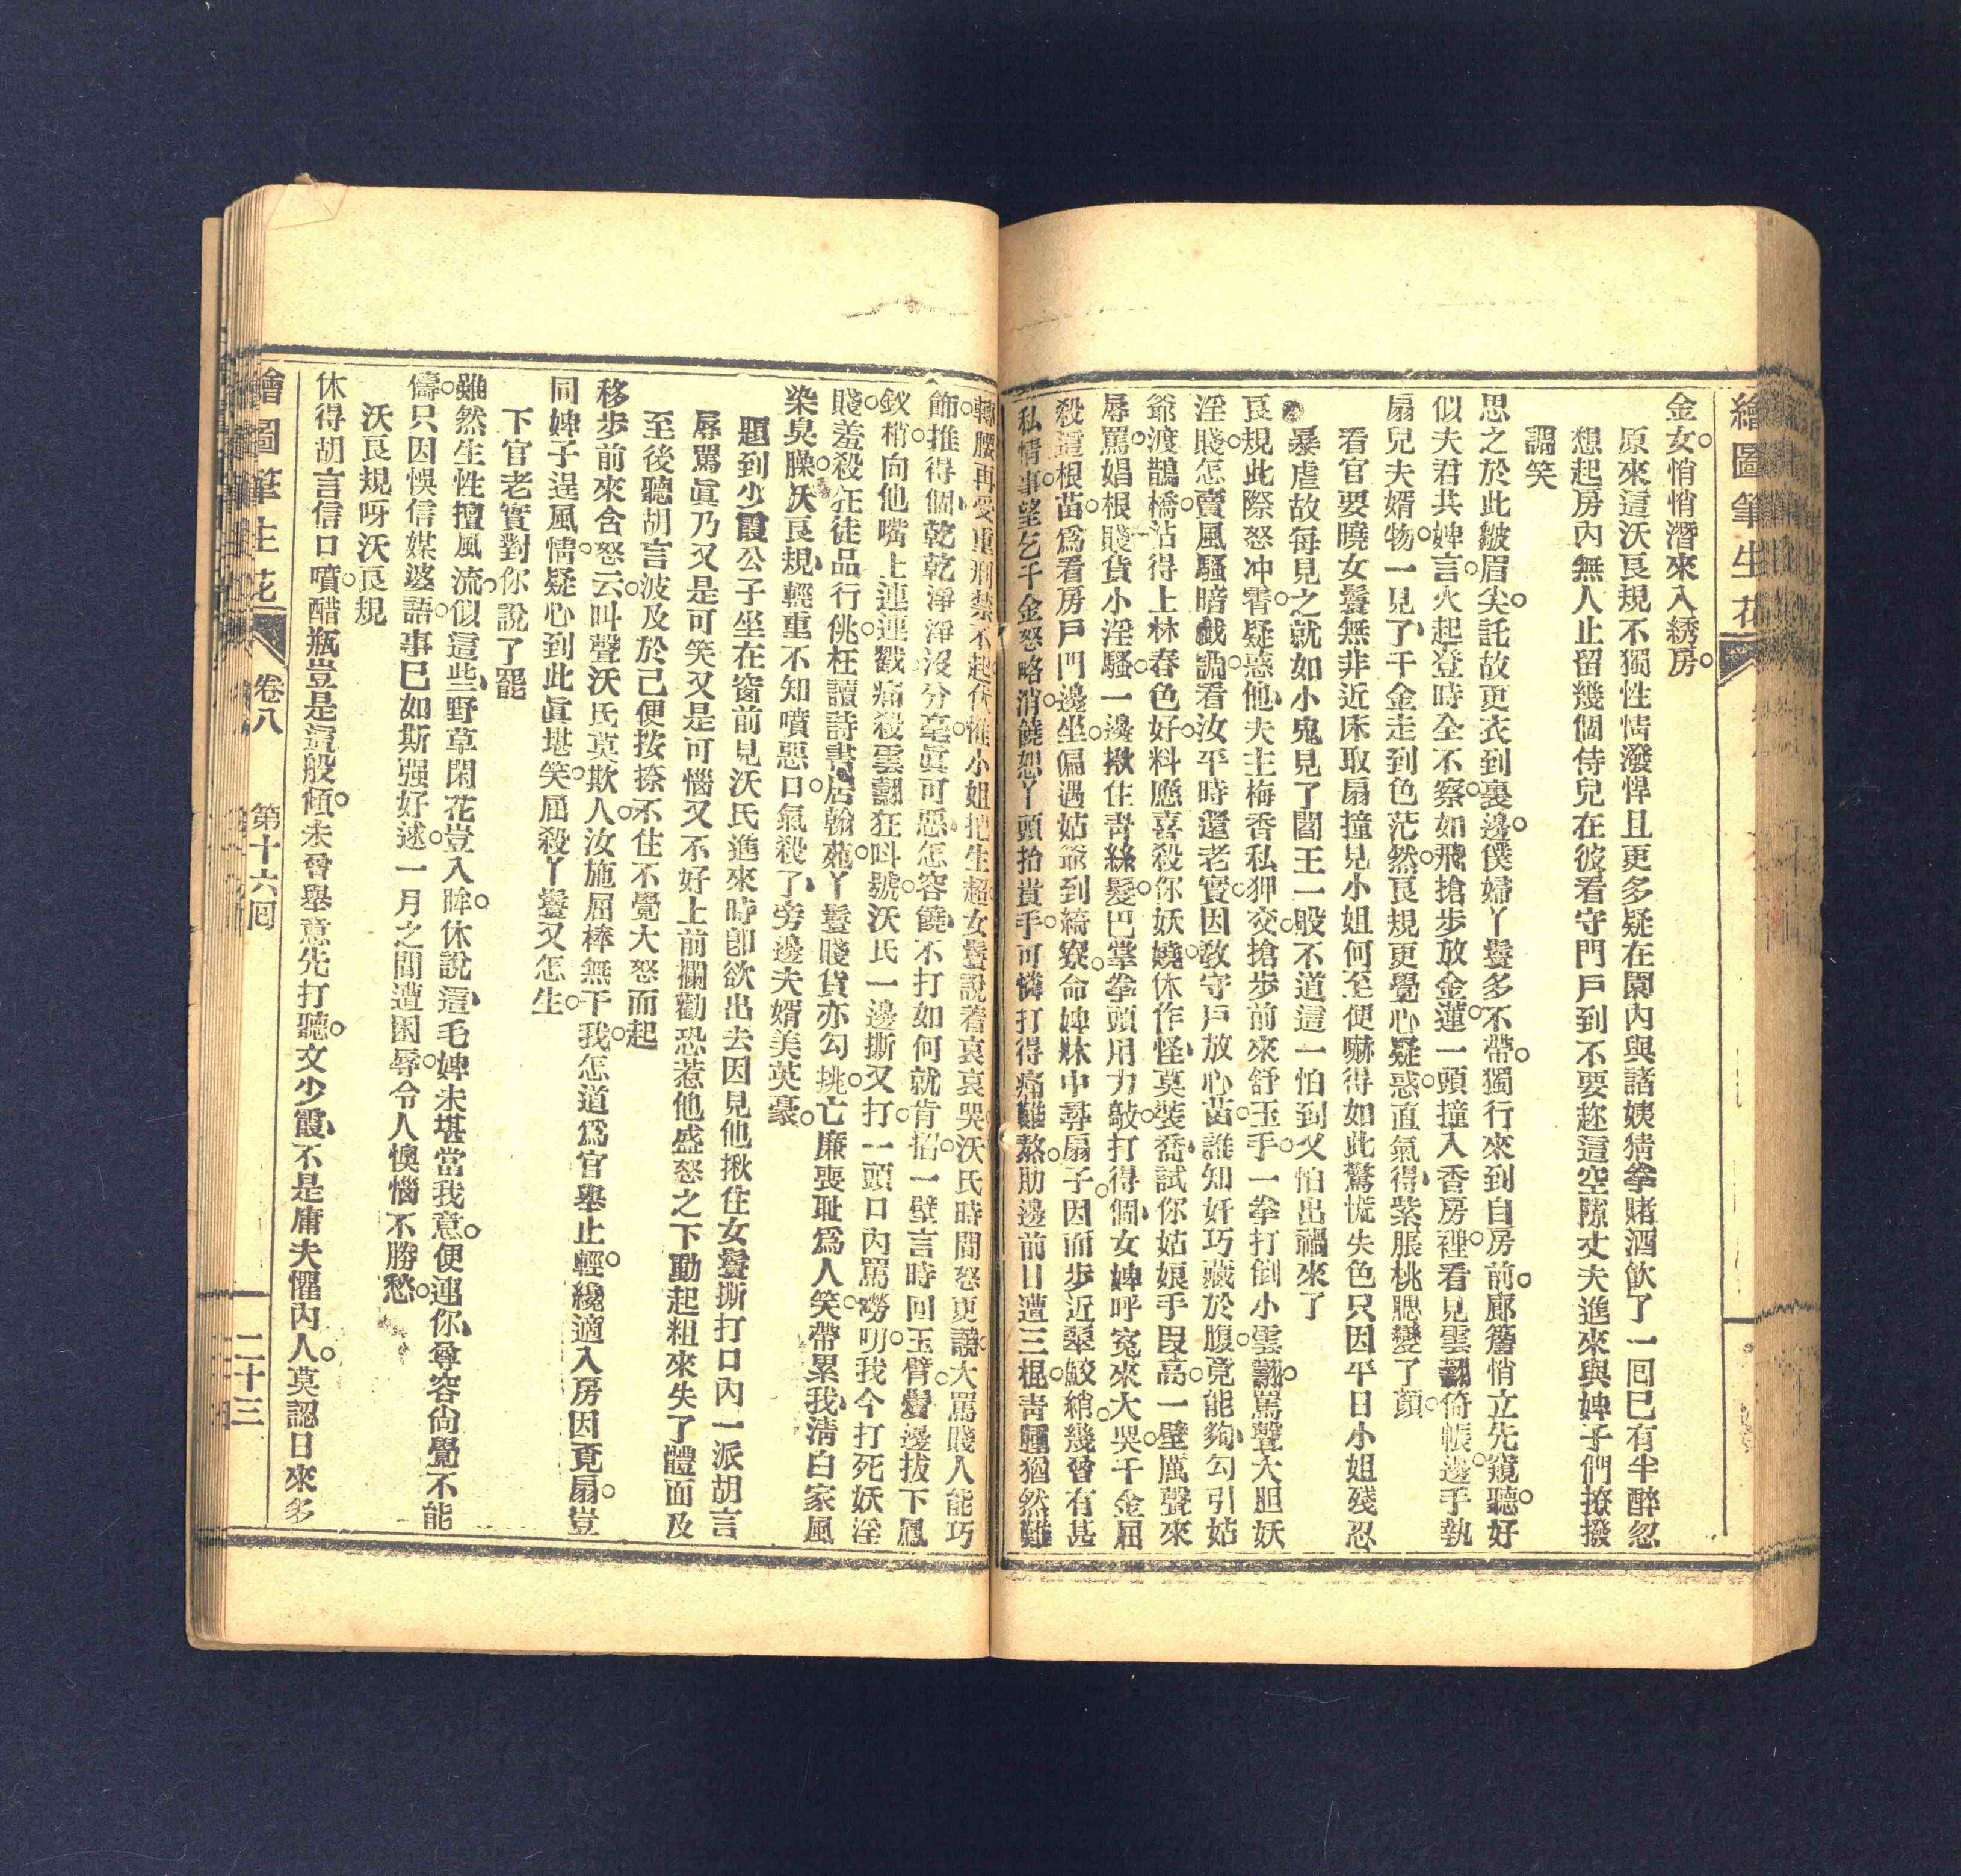 繪圖筆生花
金女。悄悄潛來入綉房。
原來這沃良規不獨性情潑悍且更多疑在園內與諸姨猜拳賭酒飲了一回已有半醉忽
想起房內無人止留幾個侍兒在彼看守門戶到不要趂這空隙丈夫進來與婢子們撩撥
調笑
思之於此皺眉尖。託故更衣到裏邊。僕婦丫鬟多不帶。獨行來到自房前。廊簷悄立先窺聽。好
似夫君共婢言。火起登時全不察。如飛搶步放金蓮。一頭撞入香房裡。看見雲翾倚帳邊。手執
扇兒夫婿物。一見了千金走到色茫然。良規更覺心疑惑。直氣得紫脹桃腮變了顏。
看官要曉女鬟無非近床取扇撞見小姐何至便嚇得如此驚慌失色只因平日小姐殘忍
暴虐故每見之就如小鬼見了閻王一般不道這一怕到又怕出禍來了
良規此際怒冲霄。疑惑他夫主梅香私狎交。搶步前來舒玉手。一拳打倒小雲翾。罵聲大胆妖
淫賤。怎賣風騷暗戲謅。看汝平時還老實。因教守戶放心苗。誰知奸巧藏於腹。竟能夠勾引姑
爺渡鵲橋。沾得上林春色好。料應喜殺你妖嬈。休作怪莫裝喬。試你姑娘手段高。一壁厲聲來
辱罵。娼根賤貨小淫騷。一邊揪住青絲髮。巴掌拳頭用力敲。打得個女婢呼寃來大哭。千金屈
殺這根苗。為看房戶門邊坐。偏遇姑爺到綺寮。命婢牀中尋扇子。因而步近翠鮫綃。幾曾有甚
私情事。望乞千金怒略消。饒恕丫頭抬貴手。可憐打得痛難熬。肋邊前日遭三棍。青腫猶然難
轉腰。再受重刑禁不起。伏惟小姐把生超。女鬟說着哀哀哭。沃氏時間怒更譊。大罵賤人能巧
飾。推得個乾乾淨淨沒分毫。真可惡怎容饒。不打如何就肯招。一壁言時回玉臂。鬢邊拔下鳳
釵梢。向他嘴上連連戳。痛殺雲翾狂叫號。沃氏一邊撕又打。一頭口內罵嘮叨。我今打死妖淫
賤。羞殺狂徒品行佻。枉讀詩書居翰苑。丫鬟賤貨亦勾挑。亡廉喪耻為人笑。帶累我清白家風
染臭臊。沃良規輕重不知噴惡口。氣殺了旁邊夫婿美英豪。
題到少霞公子坐在窗前見沃氏進來時卽欲出去因見他揪住女鬟撕打口內一派胡言
辱罵真乃又是可笑又是可惱又不好上前攔勸恐惹他盛怒之下動起粗來失了體面及
至後聽胡言波及於己便按捺不住不覺大怒而起
移步前來含怒云。叫聲沃氏莫欺人。汝施屈棒無干我。怎道為官舉止輕。纔適入房因覓扇。豈
同婢子逞風情。疑心到此真堪笑。屈殺丫鬟又怎生。
下官老實對你說了罷
雖然生性擅風流。似這些野草閑花豈入眸。休說這毛婢未堪當我意。便連你尊容尙覺不能
儔。只因悞信媒婆語。事已如斯强好逑。一月之間遭困辱。令人懊惱不勝愁。
沃良規呀沃良規
休得胡言信口噴。醋瓶豈是這般傾。未曾舉意先打聽。文少霞不是庸夫懼內人。莫認日來多
繪圖筆生花
卷八
第十六回
二十三